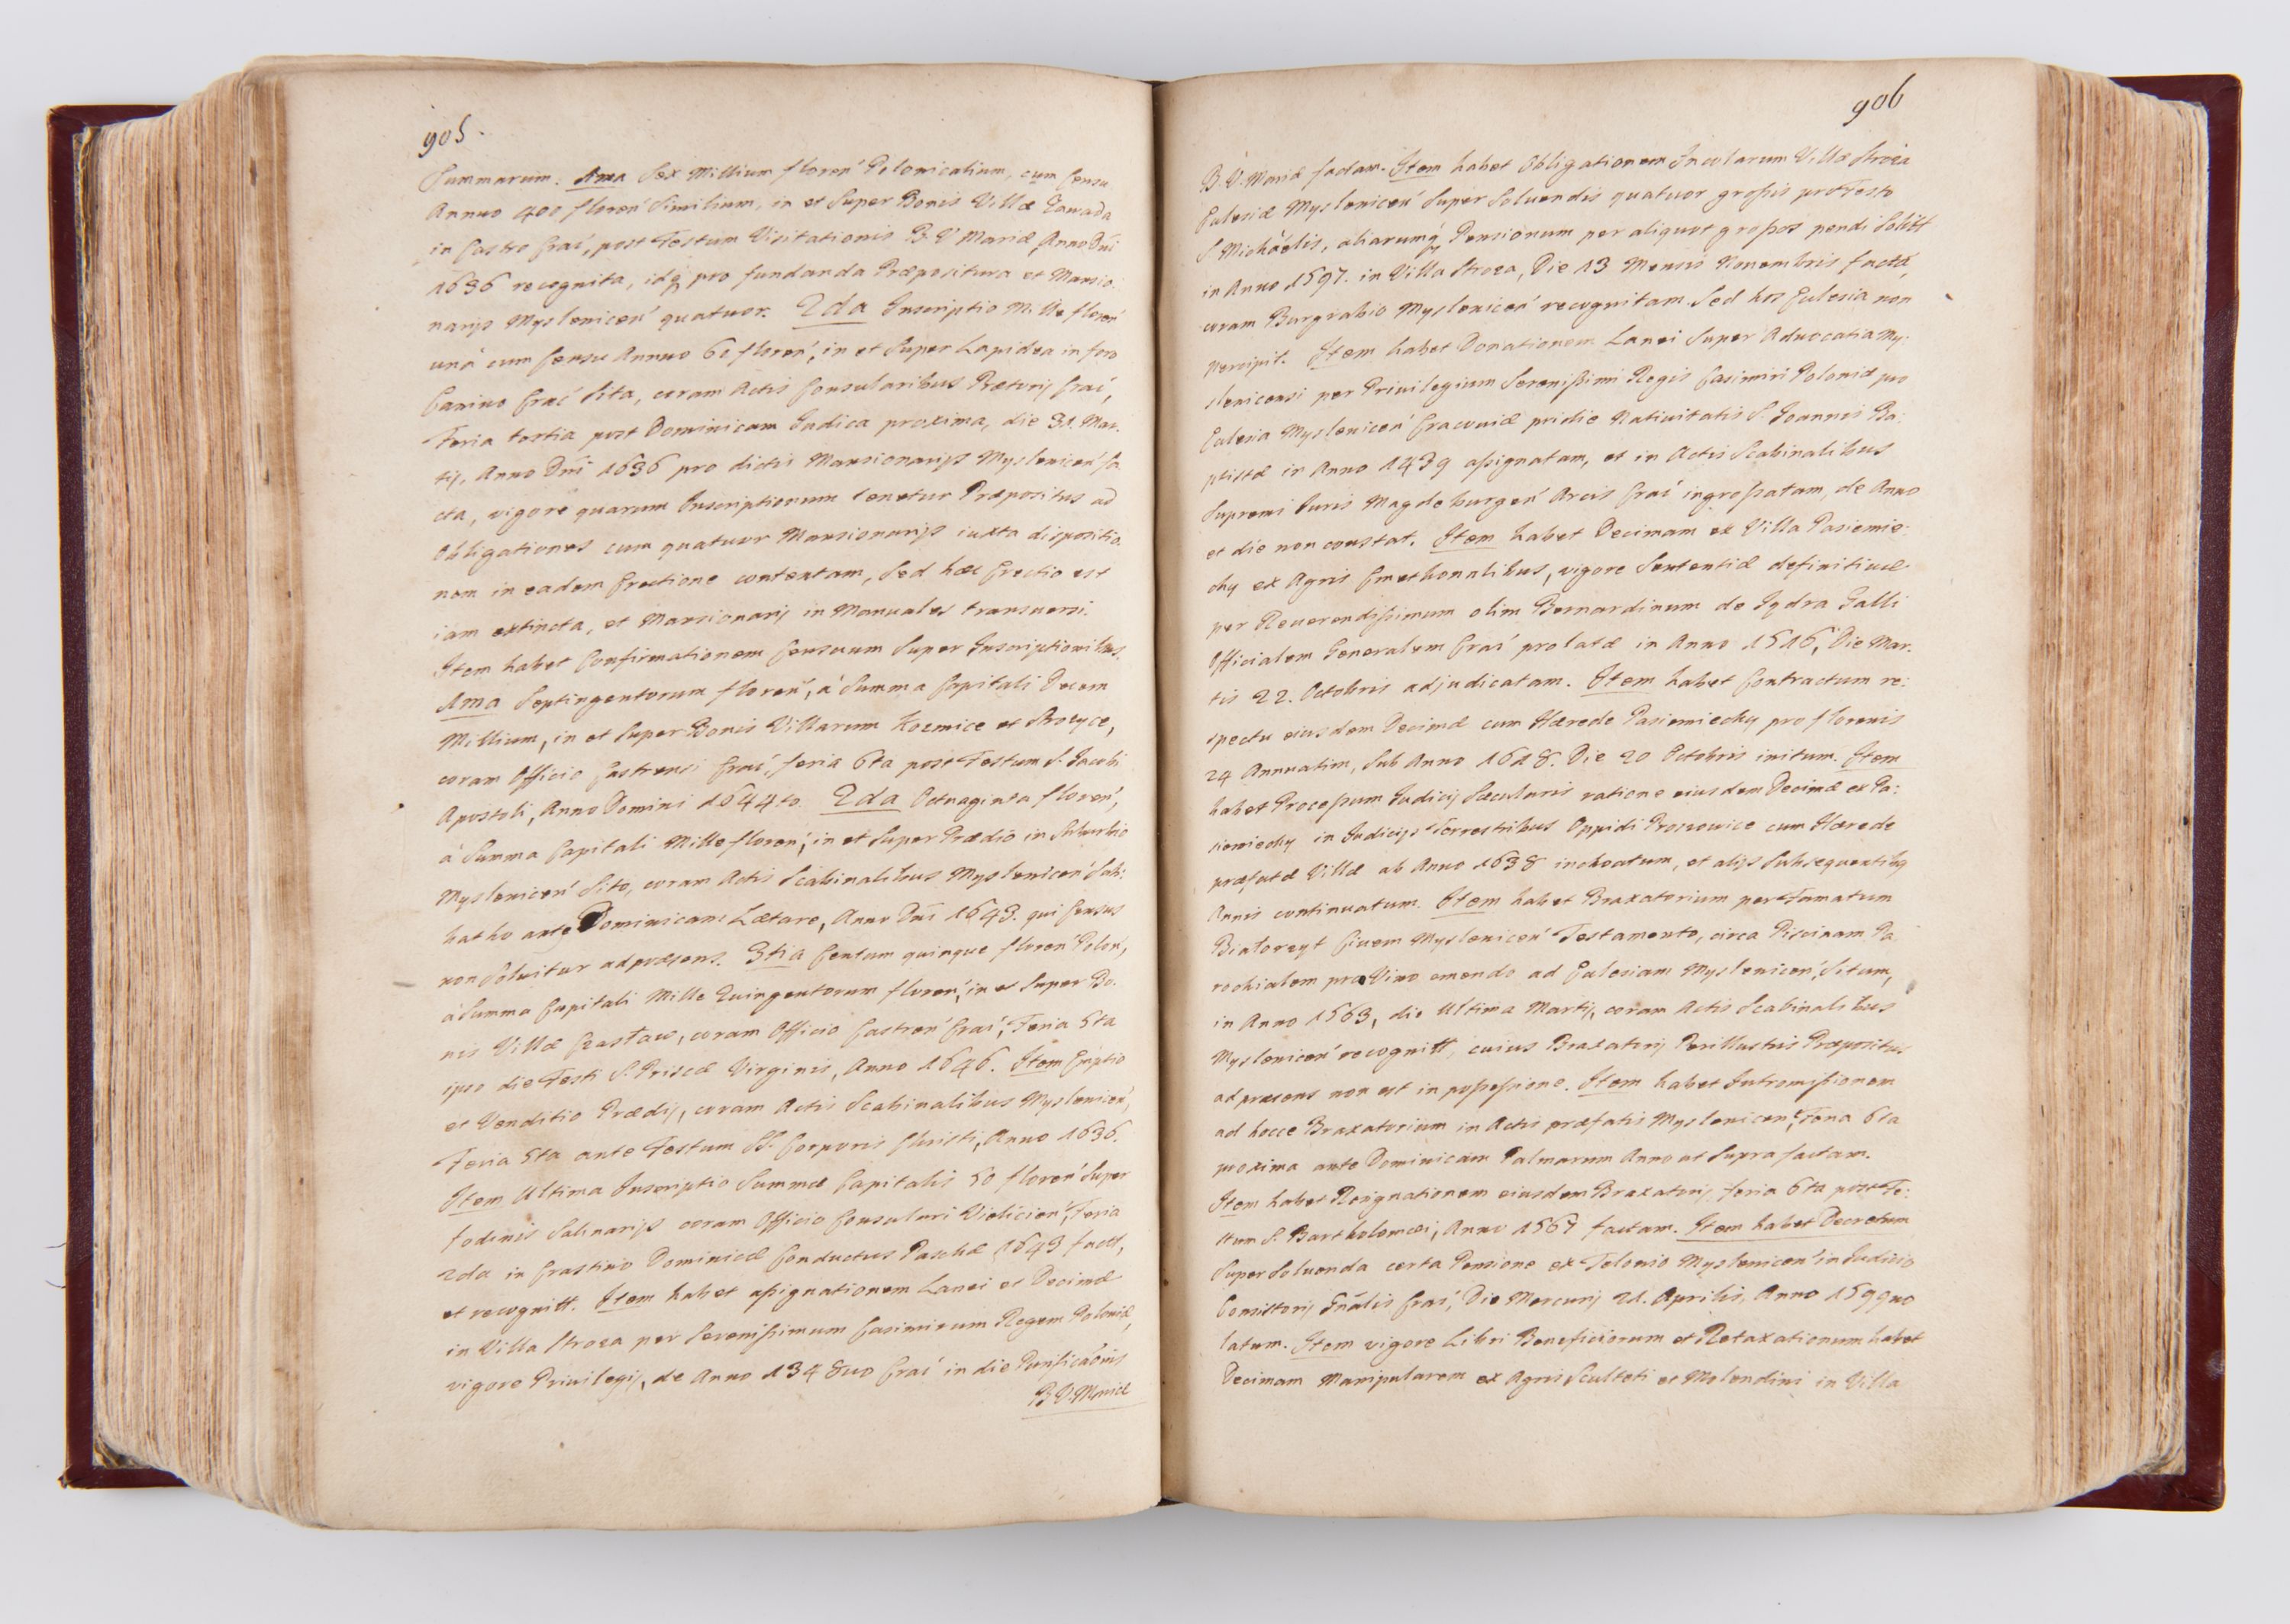 905.
Summarum: 1ma Sex Millium floren' Polonicalium, cum Censu
Annuo 400 floren' Similium, in et Super Bonis Villæ Zawada
in Castro Crac', post Festum Visitationis B. V. Mariæ Anno Dni
1636 recognita, idq pro fundanda Præpositura et Mansio:
narijs Myslenicen' quatuor. 2da Inscriptio Mille floren'
unà cum Censu Annuo 60 floren', in et Super Lapidea in foro
Canino Crac' Sita, coram Actis Consularibus Prætorij Crac',
Feria tertia post Dominicam Judica proxima, die 31. Mar.
tij, Anno Dni 1636 pro dictis Mansionarijs Myslenicen' fa
cta, vigore quarum Inscriptionum tenetur Præpositus ad
Obligationes cum quatuor Mansionarijs iuxta dispositio
nem in eadem Erectione contentam, Sed hæc Erectio est
iam extincta, et Mansionarij in Manuales transversi.
Item habet Confirmationem Censuum Super Inscriptionibus.
1ma Septingentorum floren', à Summa Capitali Decem
Millium, in et Super Bonis Villarum Kozmice et Strozyce,
coram Officio Castrensi Crac', feria 6ta post Festum S. Jacobi
Apostoli, Anno Domini 1644to. 2da Octuaginta floren',
à Summa Capitali Mille floren', in et Super Prædio in Suburbio
Myslenicen' Sito, coram Actis Scabinalibus Myslenicen' Sab:
batho ante Dominicam Lætare, Anno Dni 1643. qui Census
non Solvitur ad præsens. 3tia Centum quinque floren' Polon',
à Summa Capitali Mille Quingentorum floren', in et Super Bo.
nis Villæ Czasław, coram Officio Castren' Crac', Feria 5ta
ipso die Festi S. Priscæ Virginis, Anno 1646. Item Emptio
et Venditio Prædij, coram Actis Scabinalibus Myslenicen',
Feria 5ta ante Festum SS. Corporis Christi, Anno 1636.
Item Ultima Inscriptio Summæ Capitalis 50 floren' Super
fodinis Salinarijs coram Officio Consulari Vielicien', Feria
2da in Crastino Dominicæ Conductus Paschæ 1643 fact,
et recognitt. Item habet assignationem Lanei et Decimæ
in Villa Stroza per Serenissimum Casimirum Regem Poloniæ,
vigore Privilegij, de Anno 1348vo Crac' in die Purificaōnis
B V Mariæ
906
B. V. Mariæ factam. Item habet Obligationem Incolarum Villæ Stroza
Eclesiæ Myslenicen' Super Solvendis quatuor grossis pro Festo
S Michaëlis, aliarumq Pensionum per aliquot grossos pendi Solitt
in Anno 1597. in Villa Stroza, Die 13 Mensis Novembris factā,
coram Burgrabio Myslenicen' recognitam. Sed hos Eclesia non
percipit. Item habet Donationem Lanei Super Advocatia My:
slenicensi per Privilegium Serenissimi Regis Casimiri Poloniæ pro
Eclesia Myslenicen' Cracoviæ pridie Nativitatis S. Joannis Ba:
ptistæ in Anno 1439 assignatam, et in Actis Scabinalibus
Supremi Iuris Magdeburgen' Arcis Crac' ingrossatam, de Anno
et die non constat. Item habet Decimam ex Villa Pasiemie:
chy ex Agris Cmethonalibus, vigore Sententiæ definitivæ
per Reverendissimum olim Bernardinum de Iydra Galli
Officialem Generalem Crac' prolatæ in Anno 1516, Die Mar.
tis 22. Octobris adjudicatam. Item habet Contractum re:
spectu eiusdem Decimæ cum Hærede Pasiemiechy pro florenis
24 Annuatim, Sub Anno 1618. Die 20 Octobris initum. Item
habet Processum Judicij Sæcularis ratione eiusdem Decimæ ex Pa:
siemiechy in Judicijs Terrestribus Oppidi Proszowice cum Hærede
præfatæ Villæ ab Anno 1638 inchoatum, et alijs Subsequentibq
Annis continuatum. Item habet Braxatorium per Famatum
Białoczyt Civem Myslenicen' Testamento, circa Piscinam Pa
rochialem pro Vino emendo ad Eclesiam Myslenicen', Situm,
in Anno 1563, die Ultima Martij, coram Actis Scabinalibus
Myslenicen' recognitt, cuius Braxatorij Perillustris Præpositus
ad præsens non est in possessione. Item habet Intromissionem
ad hocce Braxatorium in Actis præfatis Myslenicen', Feria 6ta
proxima ante Dominicam Palmarum Anno ut Supra factam.
Item habet Resignationem eiusdem Braxatorij feria 6ta post Fe:
stum S. Bartholomæi, Anno 1567 factam. Item habet Decretum
Super Solvenda certa Pensione ex Telonio Myslenicen' in Judicio
Consistorij Gnālis Crac', Die Mercurij 21. Aprilis, Anno 1599no
latum. Item vigore Libri Beneficiorum et Retaxationum habet
Decimam Manipularem ex Agris Sculteti et Molendini in Villa